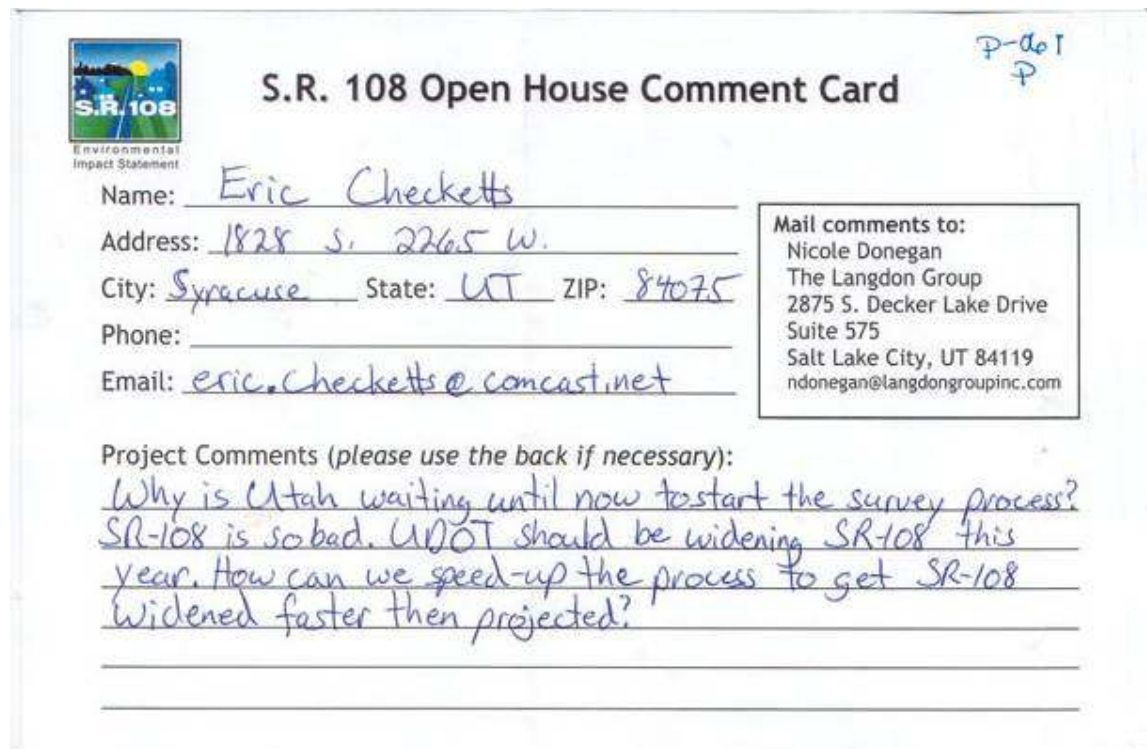 S.R. 108
Environmental
Impact Statement
S.R. 108 Open House Comment Card
P
Name: Eric Checketts
Address: 1828 S. 2265 W.
City: Syracuse State: UT ZIP: 84075
Phone:
Email: eric.checketts@comcast.net
Mail comments to:
Nicole Donegan
The Langdon Group
2875 S. Decker Lake Drive
Suite 575
Salt Lake City, UT 84119
ndonegan@langdongroupinc.com
Project Comments (please use the back if necessary):
Why is Utah waiting until now to start the survey process?
SR-108 is so bad. UDOT should be widening SR-108 this
year. How can we speed-up the process to get SR-108
widened faster then projected?